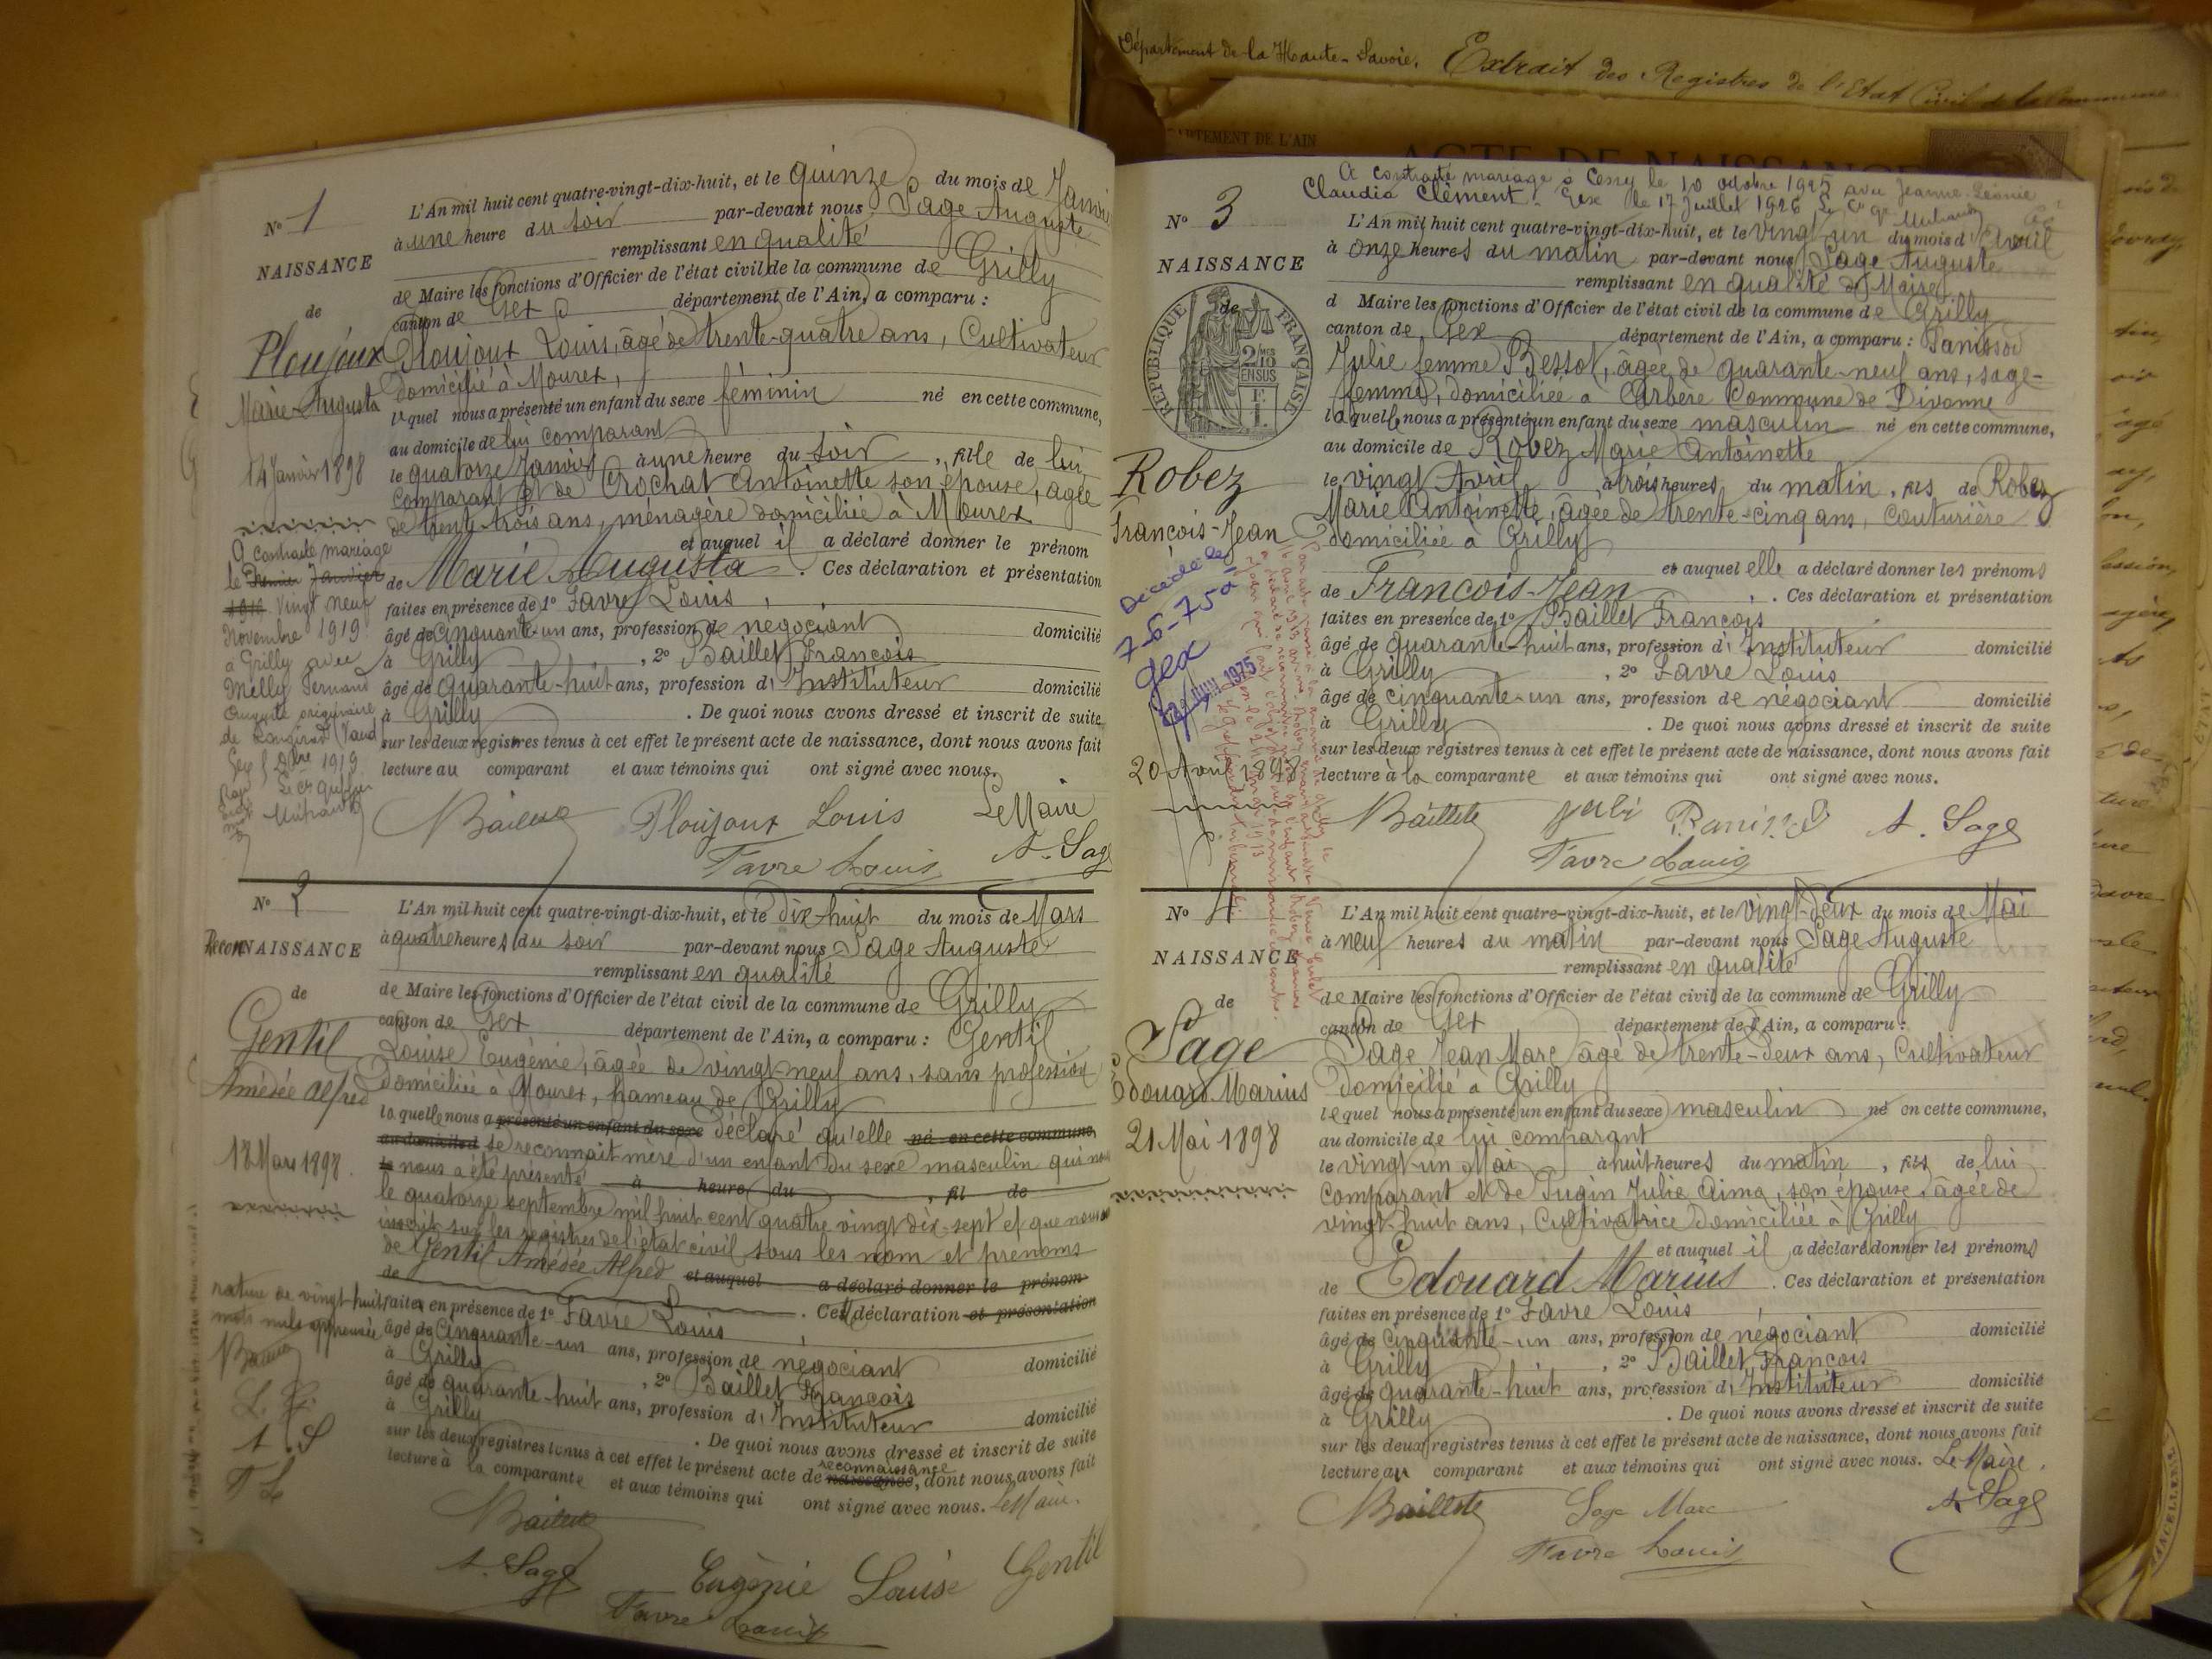 Département de la Haute-Savoie. Extrait des Registres de l'Etat Civil de la Commune
DEPARTEMENT DE L'AIN
ACTE DE NAISSANCE
N° 1
NAISSANCE
de
Ploujoux
Marie-Augusta
14 Janvier 1898
A contracté mariage
le Premier Janvier
1919 Vingt neuf
Novembre 1919
à Grilly avec
Milly Fernand
Auguste originaire
de Longirod (Vaud)
Gex 9bre 1919
L'An mil huit cent quatre-vingt-dix-huit, et le quinze du mois de Janvier
à une heure du soir par-devant nous Sage Auguste
remplissant en qualité
de Maire les fonctions d'Officier de l'état civil de la commune de Grilly
canton de Gex département de l'Ain, a comparu :
Ploujoux Louis, âgé de trente-quatre ans, Cultivateur
domicilié à Mourex,
lequel nous a présenté un enfant du sexe féminin né en cette commune,
au domicile de lui comparant
le quatorze Janvier à une heure du soir, fille de lui
comparant et de Crochat Antoinette son épouse, âgée
de trente-trois ans, ménagère domiciliée à Mourex
et auquel il a déclaré donner le prénom
de Marie Augusta. Ces déclaration et présentation
faites en présence de 1° Favre Louis,
âgé de cinquante-un ans, profession de négociant domicilié
à Grilly, 2° Baillet François
âgé de quarante-huit ans, profession d'Instituteur domicilié
à Grilly. De quoi nous avons dressé et inscrit de suite
sur les deux registres tenus à cet effet le présent acte de naissance, dont nous avons fait
lecture au comparant et aux témoins qui ont signé avec nous.
Baillet Ploujoux Louis Le Maire
Favre Louis A. Sage
N° 2
Recon NAISSANCE
de
Gentil
Amédée Alfred
18 Mars 1898.
rature de vingt-huit
mots nuls approuvée
Baillet
L. G.
A. S
F L
L'An mil huit cent quatre-vingt-dix-huit, et le dix-huit du mois de Mars
à quatre heures du soir par-devant nous Sage Auguste
remplissant en qualité
de Maire les fonctions d'Officier de l'état civil de la commune de Grilly
canton de Gex département de l'Ain, a comparu : Gentil
Louise Eugénie, âgée de vingt-neuf ans, sans profession
domiciliée à Mourex, hameau de Grilly
laquelle nous a présenté un enfant du sexe déclaré qu'elle né en cette commune,
au domicile d se reconnait mère d'un enfant du sexe masculin qui nous
le nous a été présenté à heure du, fil de
le quatorze septembre mil huit cent quatre vingt dix-sept et que nous avons
inscrit sur les registres de l'état civil sous les nom et prénoms
de Gentil Amédée Alfred et auquel a déclaré donner le prénom
de. Cette déclaration et présentation
faites en présence de 1° Favre Louis,
âgé de cinquante-un ans, profession de négociant domicilié
à Grilly, 2° Baillet François
âgé de quarante-huit ans, profession d'Instituteur domicilié
à Grilly. De quoi nous avons dressé et inscrit de suite
sur les deux registres tenus à cet effet le présent acte de naissance reconnaissance, dont nous avons fait
lecture à la comparante et aux témoins qui ont signé avec nous. Le Maire.
Baillet
A. Sage Eugénie Louise Gentil
Favre Louis
A contracté mariage à Cessy le 10 octobre 1925 avec Jeanne-Léonie
Claudia Clément. Gex le 17 Juillet 1926
N° 3
NAISSANCE
de
REPUBLIQUE FRANÇAISE
2/10 EN SUS
Robez
François-Jean
Décédé le
7-6-75 à
Gex
JUIN 1975
20 Avril 1898
L'An mil huit cent quatre-vingt-dix-huit, et le vingt un du mois d'Avril
à onze heures du matin par-devant nous Sage Auguste
remplissant en qualité de Maire
d Maire les fonctions d'Officier de l'état civil de la commune de Grilly
canton de Gex département de l'Ain, a comparu : Panissod
Julie femme Bessot, âgée de quarante-neuf ans, sage-
femme, domiciliée à Arbère Commune de Divonne
laquelle nous a présenté un enfant du sexe masculin né en cette commune,
au domicile de Robez Marie Antoinette
le vingt Avril à trois heures du matin, fils de Robez
Marie Antoinette, âgée de trente-cinq ans, couturière
domiciliée à Grilly
et auquel elle a déclaré donner les prénoms
de François-Jean. Ces déclaration et présentation
faites en présence de 1° Baillet François
âgé de quarante-huit ans, profession d'Instituteur domicilié
à Grilly, 2° Favre Louis
âgé de cinquante-un ans, profession de négociant domicilié
à Grilly. De quoi nous avons dressé et inscrit de suite
sur les deux registres tenus à cet effet le présent acte de naissance, dont nous avons fait
lecture à la comparante et aux témoins qui ont signé avec nous.
Baillet A. Sage
Favre Louis
N° 4
NAISSANCE
de
Sage
Edouard Marius
21 Mai 1898
L'An mil huit cent quatre-vingt-dix-huit, et le vingt-deux du mois de Mai
à neuf heures du matin par-devant nous Sage Auguste
remplissant en qualité
de Maire les fonctions d'Officier de l'état civil de la commune de Grilly
canton de Gex département de l'Ain, a comparu :
Sage Jean Marc âgé de trente-deux ans, Cultivateur
domicilié à Grilly
lequel nous a présenté un enfant du sexe masculin né en cette commune,
au domicile de lui comparant
le vingt-un Mai à huit heures du matin, fils de lui
comparant et de Pugin Julie Aima, son épouse, âgée de
vingt-huit ans, Cultivatrice domiciliée à Grilly
et auquel il a déclaré donner les prénoms
de Edouard Marius. Ces déclaration et présentation
faites en présence de 1° Favre Louis,
âgé de cinquante-un ans, profession de négociant domicilié
à Grilly, 2° Baillet François
âgé de quarante-huit ans, profession d'Instituteur domicilié
à Grilly. De quoi nous avons dressé et inscrit de suite
sur les deux registres tenus à cet effet le présent acte de naissance, dont nous avons fait
lecture au comparant et aux témoins qui ont signé avec nous. Le Maire,
Baillet Sage Marc A. Sage
Favre Louis